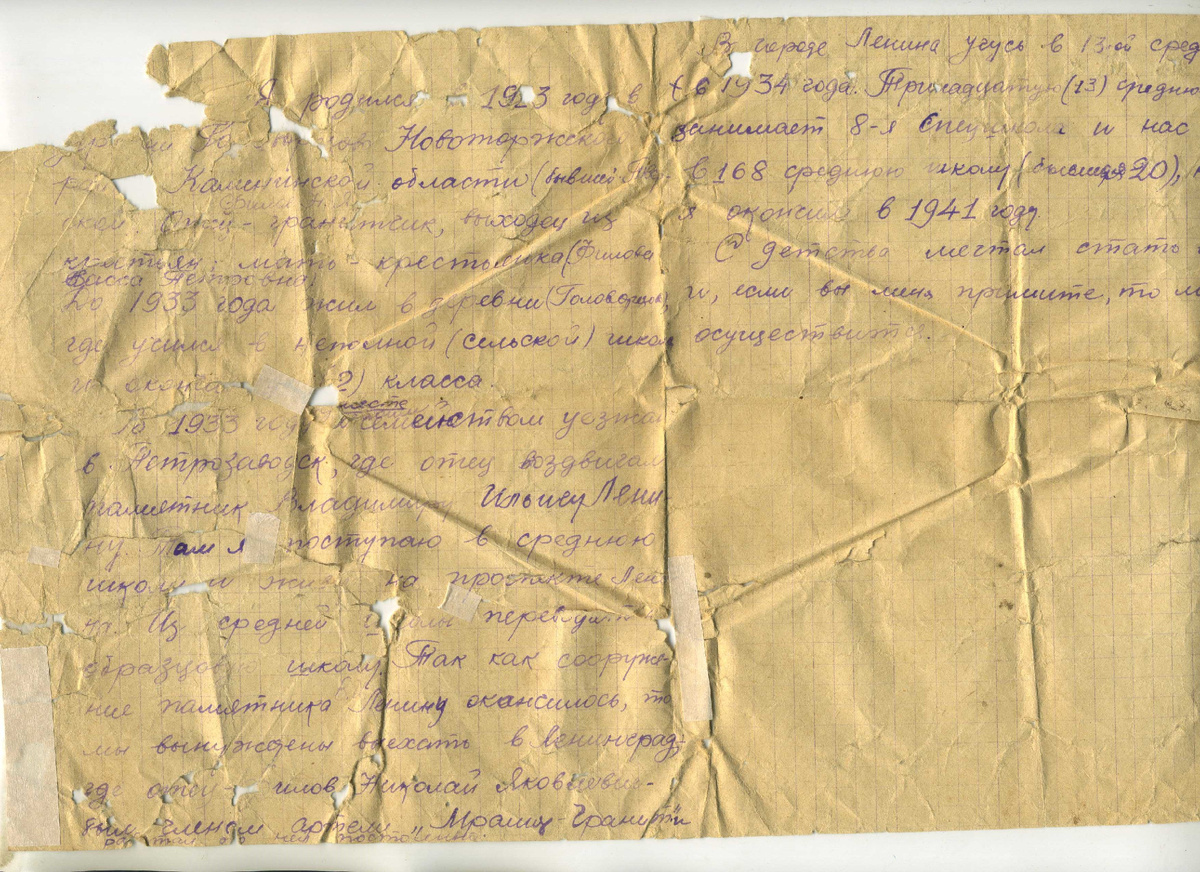 Я родился 1923 году в
Новоторжской
Калининской области (бывшей
Отец - гранитчик, выходец из
крестьян; мать - крестьянка (Филова
Петровна)
До 1933 года жил в деревни (Головорце),
где учился в неполной (сельской) школ
и оконч 2) класса.
вместе
В 1933 году с семейством уезжаю
в Петрозаводск, где отец воздвигал
памятник Владимиру Ильичу Лени
ну. Там я поступаю в среднюю
школу и живу на проспекте Лени
на. Из средней школы
образцовую школу. Так как сооруже-
ние памятника Ленину окансилось, то
мы вынуждены выехать в Ленинград,
где отец - илов Николай Яковлевич -
был членом артели „Мрамор-Гранит"
В городе Ленина учусь в 13-ой сред
с 1934 года. Тринадцатую (13) среднюю
занимает 8-я спецшкола и нас
в 168 среднюю школу (бывшая 20),
я окончил в 1941 году.
С детства мечтал стать
и, если вы меня примите, то
осуществится.